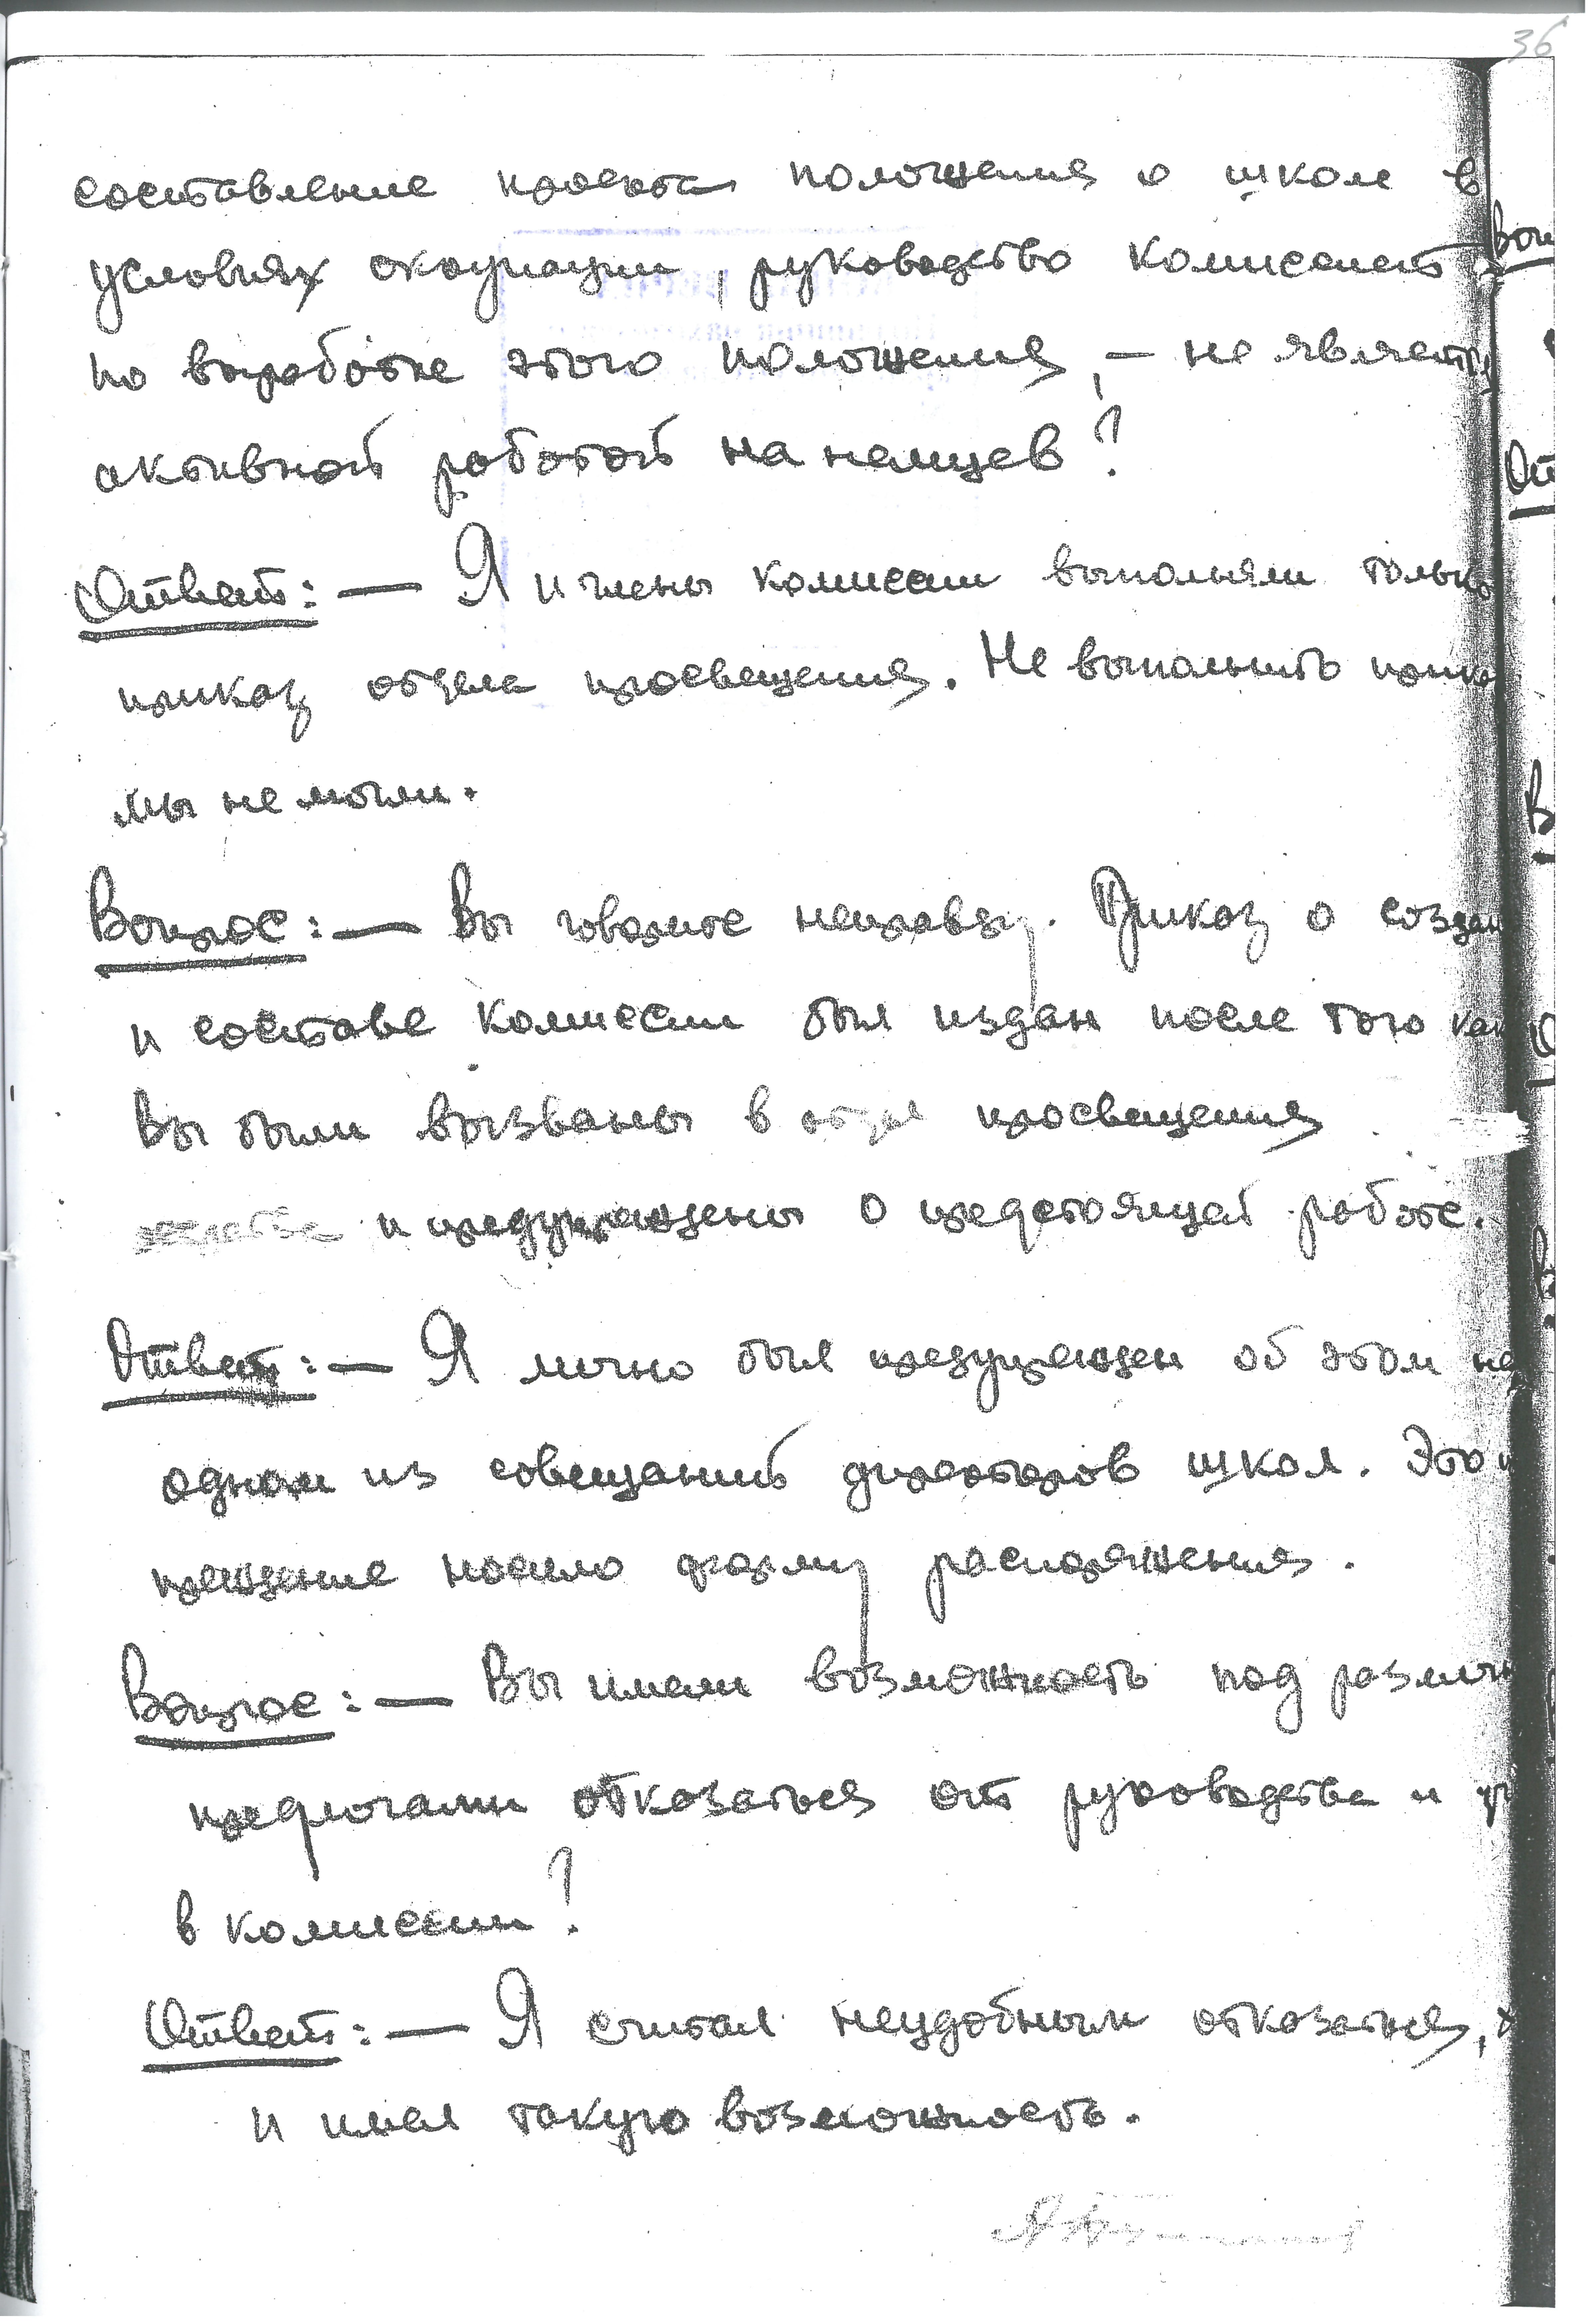 36
составление проекта положения о школе в
условиях окаупации, руководство комиссией
по выработке этого положения, — не являетс
активной работой на немцев?
Ответ: — Я и члены комиссии выполняли только
приказ отдела просвещения. Не выполнить прика
мы не могли.
Вопрос: — Вы говорите неправду. Приказ о создан
и составе комиссии был издан после того как
Вы были вызваны в отдел просвещения
и предупреждены о предстоящей работе.
Ответ: — Я лично был предупрежден об этом на
одном из совещаний директоров школ. Это п
преждение носило форму распоряжения.
Вопрос: — Вы имели возможность под различ
предлогами отказаться от руководства и уч
в комиссии?
Ответ: — Я считал неудобным отказаться, х
и имел такую возможность.